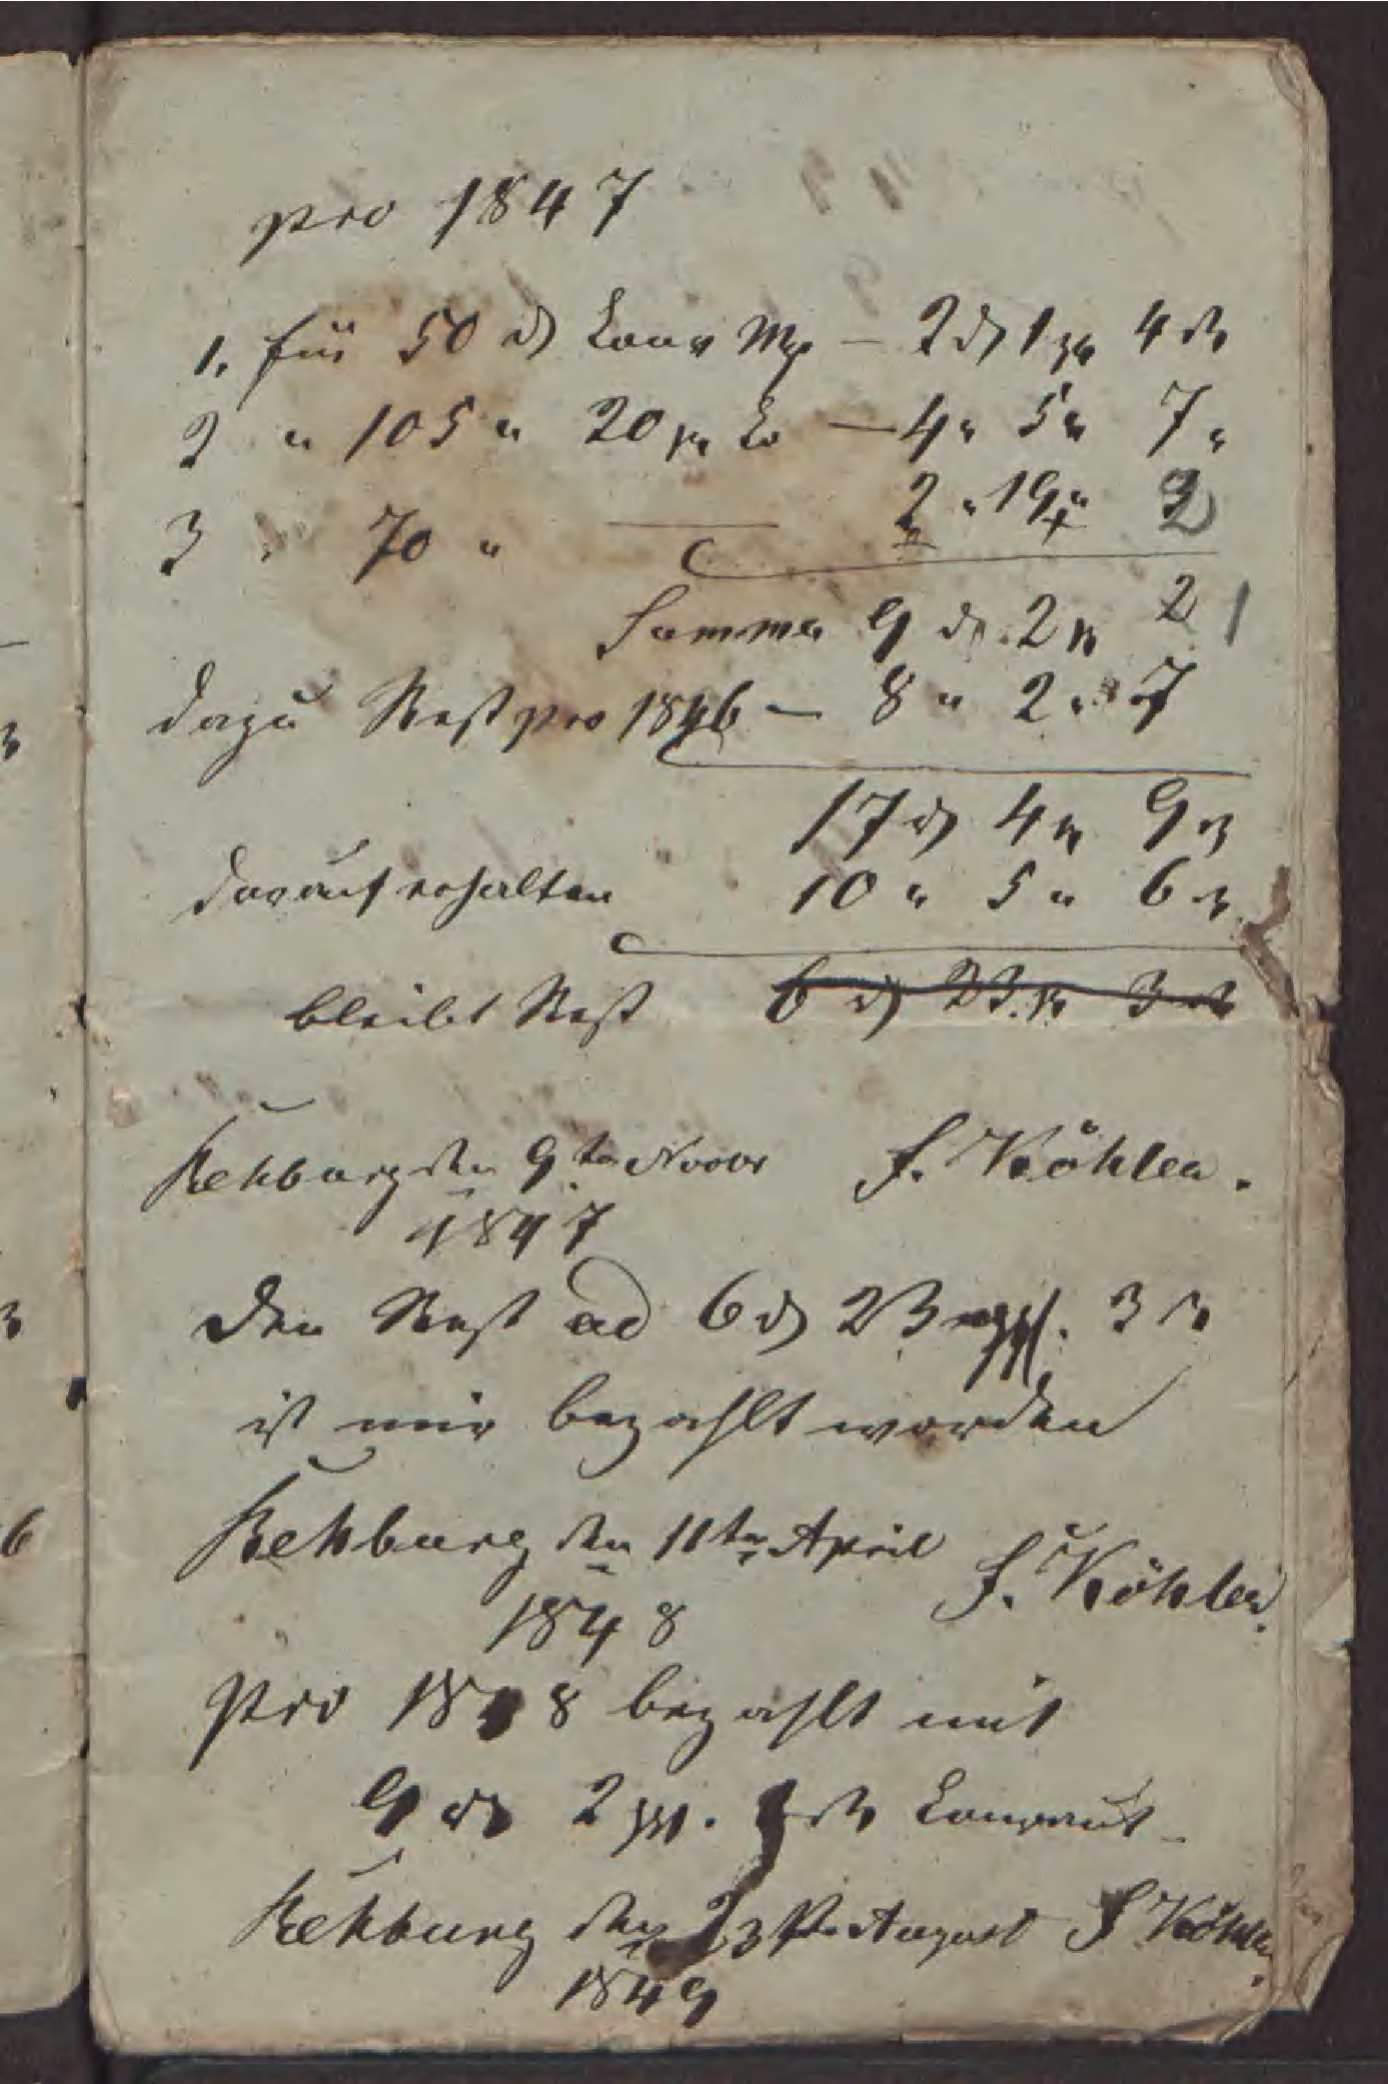 pro 1847
1. für 50 ₰ Cour Mze — 2 ₰ 1 ggr 4 ₰
2 " 105 " 20 gr do — 4 " 5 " 7 "
3 " 70 " — 2 " 19 " 2
Summa 9 ₰ 2 gr 2
dazu Rest pro 1846 — 8 " 2 " 7
17 ₰ 4 gr 9 ₰
darauf erhalten 10 " 5 " 6 ₰
bleibt Rest 6 ₰ 23 gr 3 ₰
Rehburg den 9ten Novbr F. Köhler.
1847
Den Rest ad 6 ₰ 23 ggr. 3 ₰
ist mir bezahlt worden
Rehburg den 11ten April F. Köhler.
1848
Pro 1848 bezahlt mit
9 ₰ 2 ggr. ₰ Courant
Rehburg den 23st August F Köhler.
1849